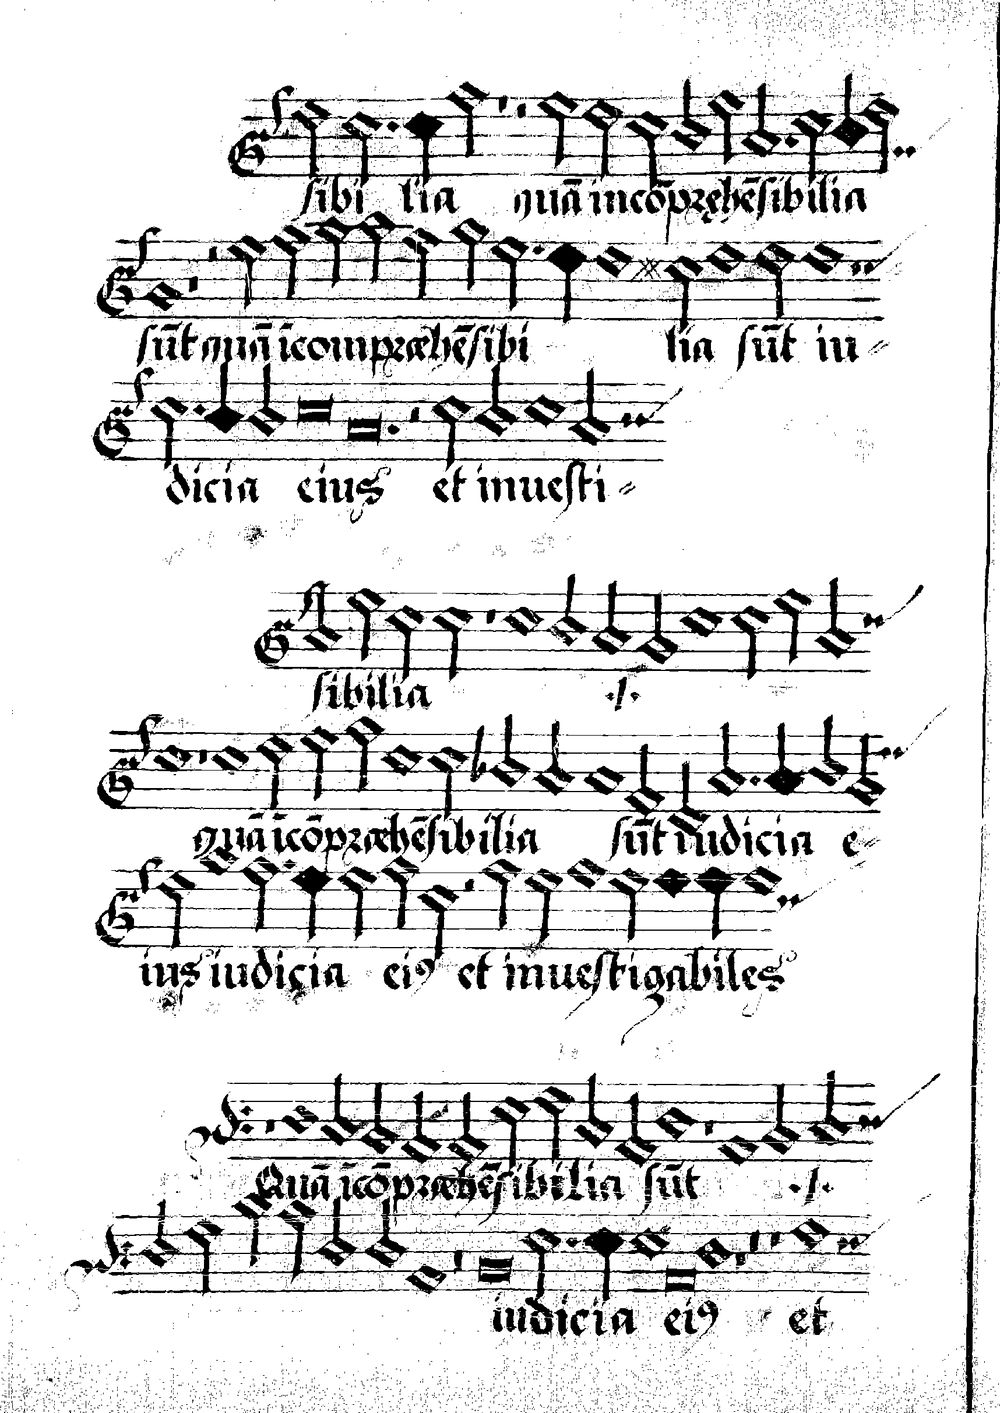 sibi lia quā incōpręhēsibilia
sūt quā īcompræhēsibi lia sūt iu-
dicia eius et inuesti-
sibilia ./.
quā īcōpræhēsibilia sūt iudicia e-
ius iudicia ei9 et inuestigabiles
Quā īcōpræhēsibilia sūt ./.
iudicia ei9 et